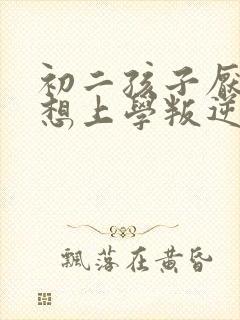 初二孩子厌
想上學叛逆
飄落在黄昏